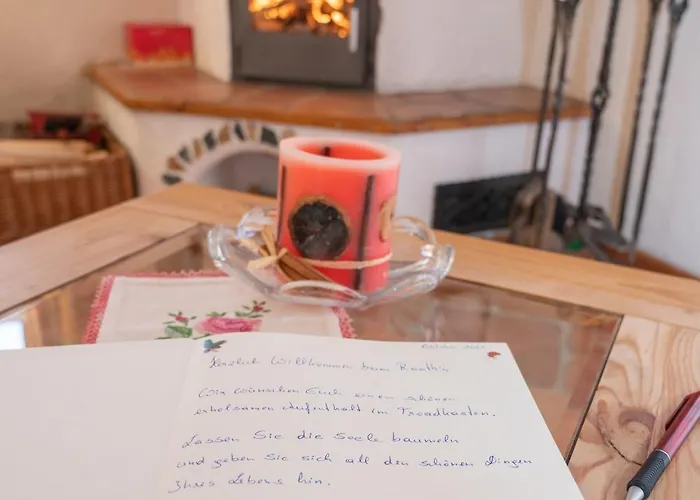 Oktober 2021
Herzlich Willkommen beim Roath'n
Wir wünschen Euch einen schönen
erholsamen Aufenthalt im Troadkasten.
Lassen Sie die Seele baumeln
und geben Sie sich all den schönen Dingen
Ihres Lebens hin.